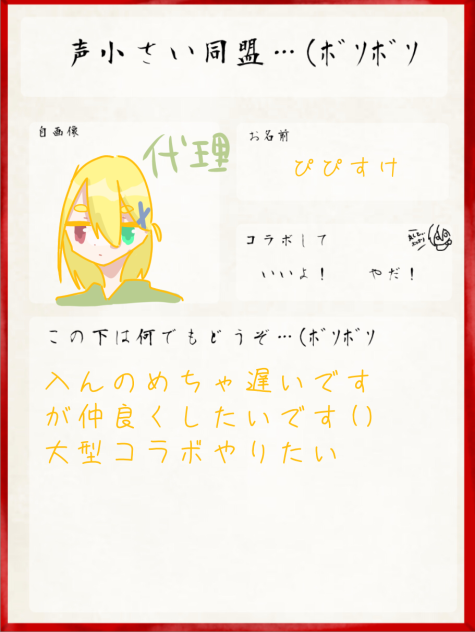 声小さい同盟…(ﾎﾞｿﾎﾞｿ
自画像
代理
お名前
ぴぴすけ
コラボして
いいよ！ やだ！
この下は何でもどうぞ…(ﾎﾞｿﾎﾞｿ
入んのめちゃ遅いです
が仲良くしたいです()
大型コラボやりたい